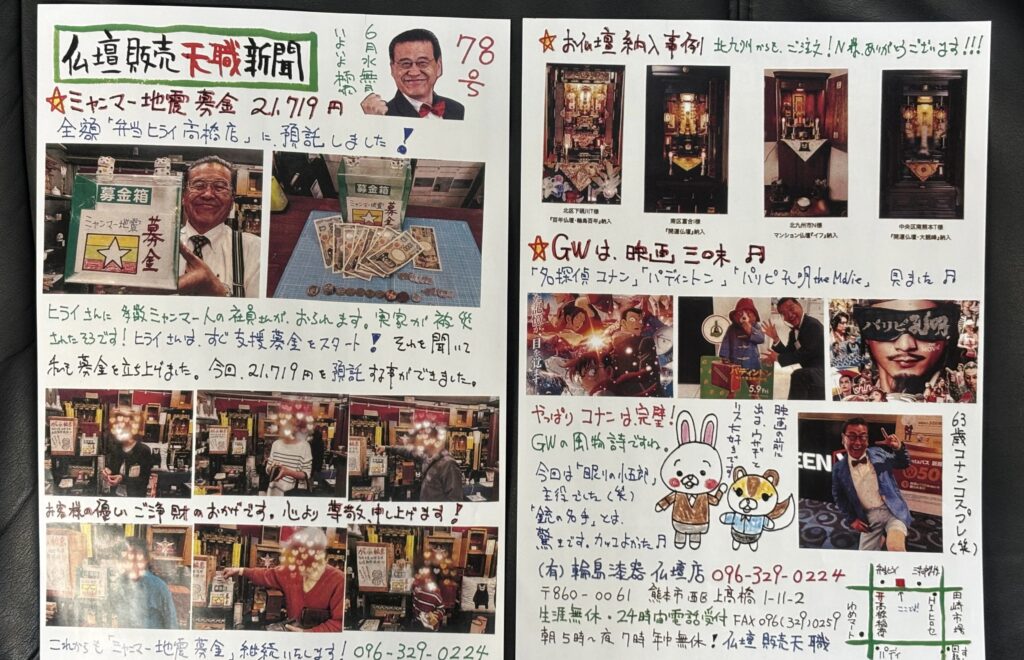 仏壇販売天職新聞
6月水無月
いよいよ梅雨
78号
☆ミャンマー地震募金 21,719円
全額「弁当ヒライ高橋店」に、預託しました!
募金箱
ミャンマー地震
募金
募金箱
ヒライさんに多数ミャンマー人の社員さんが、おられます。実家が被災
されたそうです!ヒライさんは、すぐ支援募金をスタート!それを聞いて
私も募金を立ち上げました。今回、21,719円を預託する事ができました。
お客様の優しいご浄財のおかげです。心より尊敬申し上げます!
これからも「ミャンマー地震募金」継続いたします!096-329-0224
☆お仏壇納入事例 北九州からも、ご注文!N様、ありがとうございます!!!
北区下硯川T様
『百年仏壇・輪島百年』納入
南区富合I様
『開運仏壇』納入
北九州市N様
マンション仏壇『イフ』納入
中央区南熊本T様
『開運仏壇・大観峰』納入
☆GWは、映画三昧♬
「名探偵コナン」「パディントン」「パリピ孔明the Movie」見ました♬
パディントン
5.9
パリピ孔明
やっぱりコナンは、完璧!
GWの風物詩ですね。
今回は「眠りの小五郎」
主役でした(笑)
「銃の名手」とは、
驚きです。カッコよかった♬
映画の前に
出る、ウサギと
リス大好きです
63歳コナンコスプレ(笑)
(有)輪島漆器仏壇店 096-329-0224
〒860-0061 熊本市西区上高橋1-11-2
生涯無休・24時間電話受付 FAX096(329)0259
朝5時〜夜7時年中無休!仏壇販売天職
ここです!
田崎市場
ゆめマート